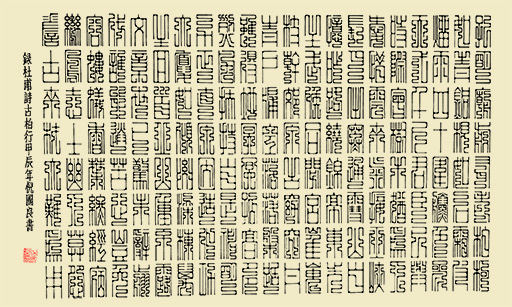 孔明廟前有老柏柯
如青銅根如石霜皮
溜雨四十圍黛色參
天二千尺君臣已與
時際會樹木猶為人
愛惜雲來氣接巫峽
長月出寒通雪山白
憶昨路繞錦亭東先
主武侯同閟宮崔嵬
枝幹郊原古窈窕丹
青戶牖空落落盤踞
雖得地冥冥孤高多
烈風扶持自是神明
力正直原因造化功
大廈如傾要梁棟萬
牛回首丘山重不露
文章世已驚未辭剪
伐誰能送苦心豈免
容螻蟻香葉終經宿
鸞鳳志士幽人莫怨
嗟古來材大難為用
錄杜甫詩古柏行甲辰年倪國良書